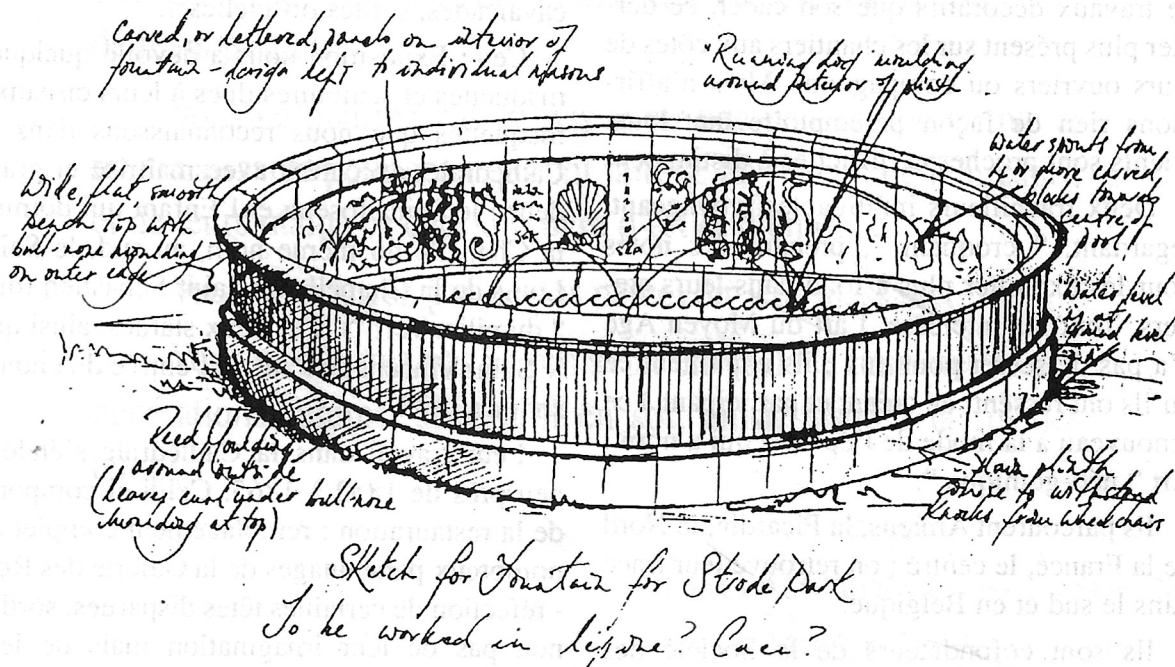 Carved, or lettered, panels on interior of
fountain - design left to individual masons
Running dog moulding
around interior of plinth
Water spouts from
4 or more carved
blades towards
centre of
pool
Wide, flat smooth
bench top with
bull-nose moulding
on outer edge
Water level
is at
ground level
Reed Moulding
around outside
(leaves cut under bullnose
moulding at top)
Plain plinth
course to withstand
knocks from wheelchairs
Sketch for Fountain for Strode Park
To be worked in Lépine? Caen?